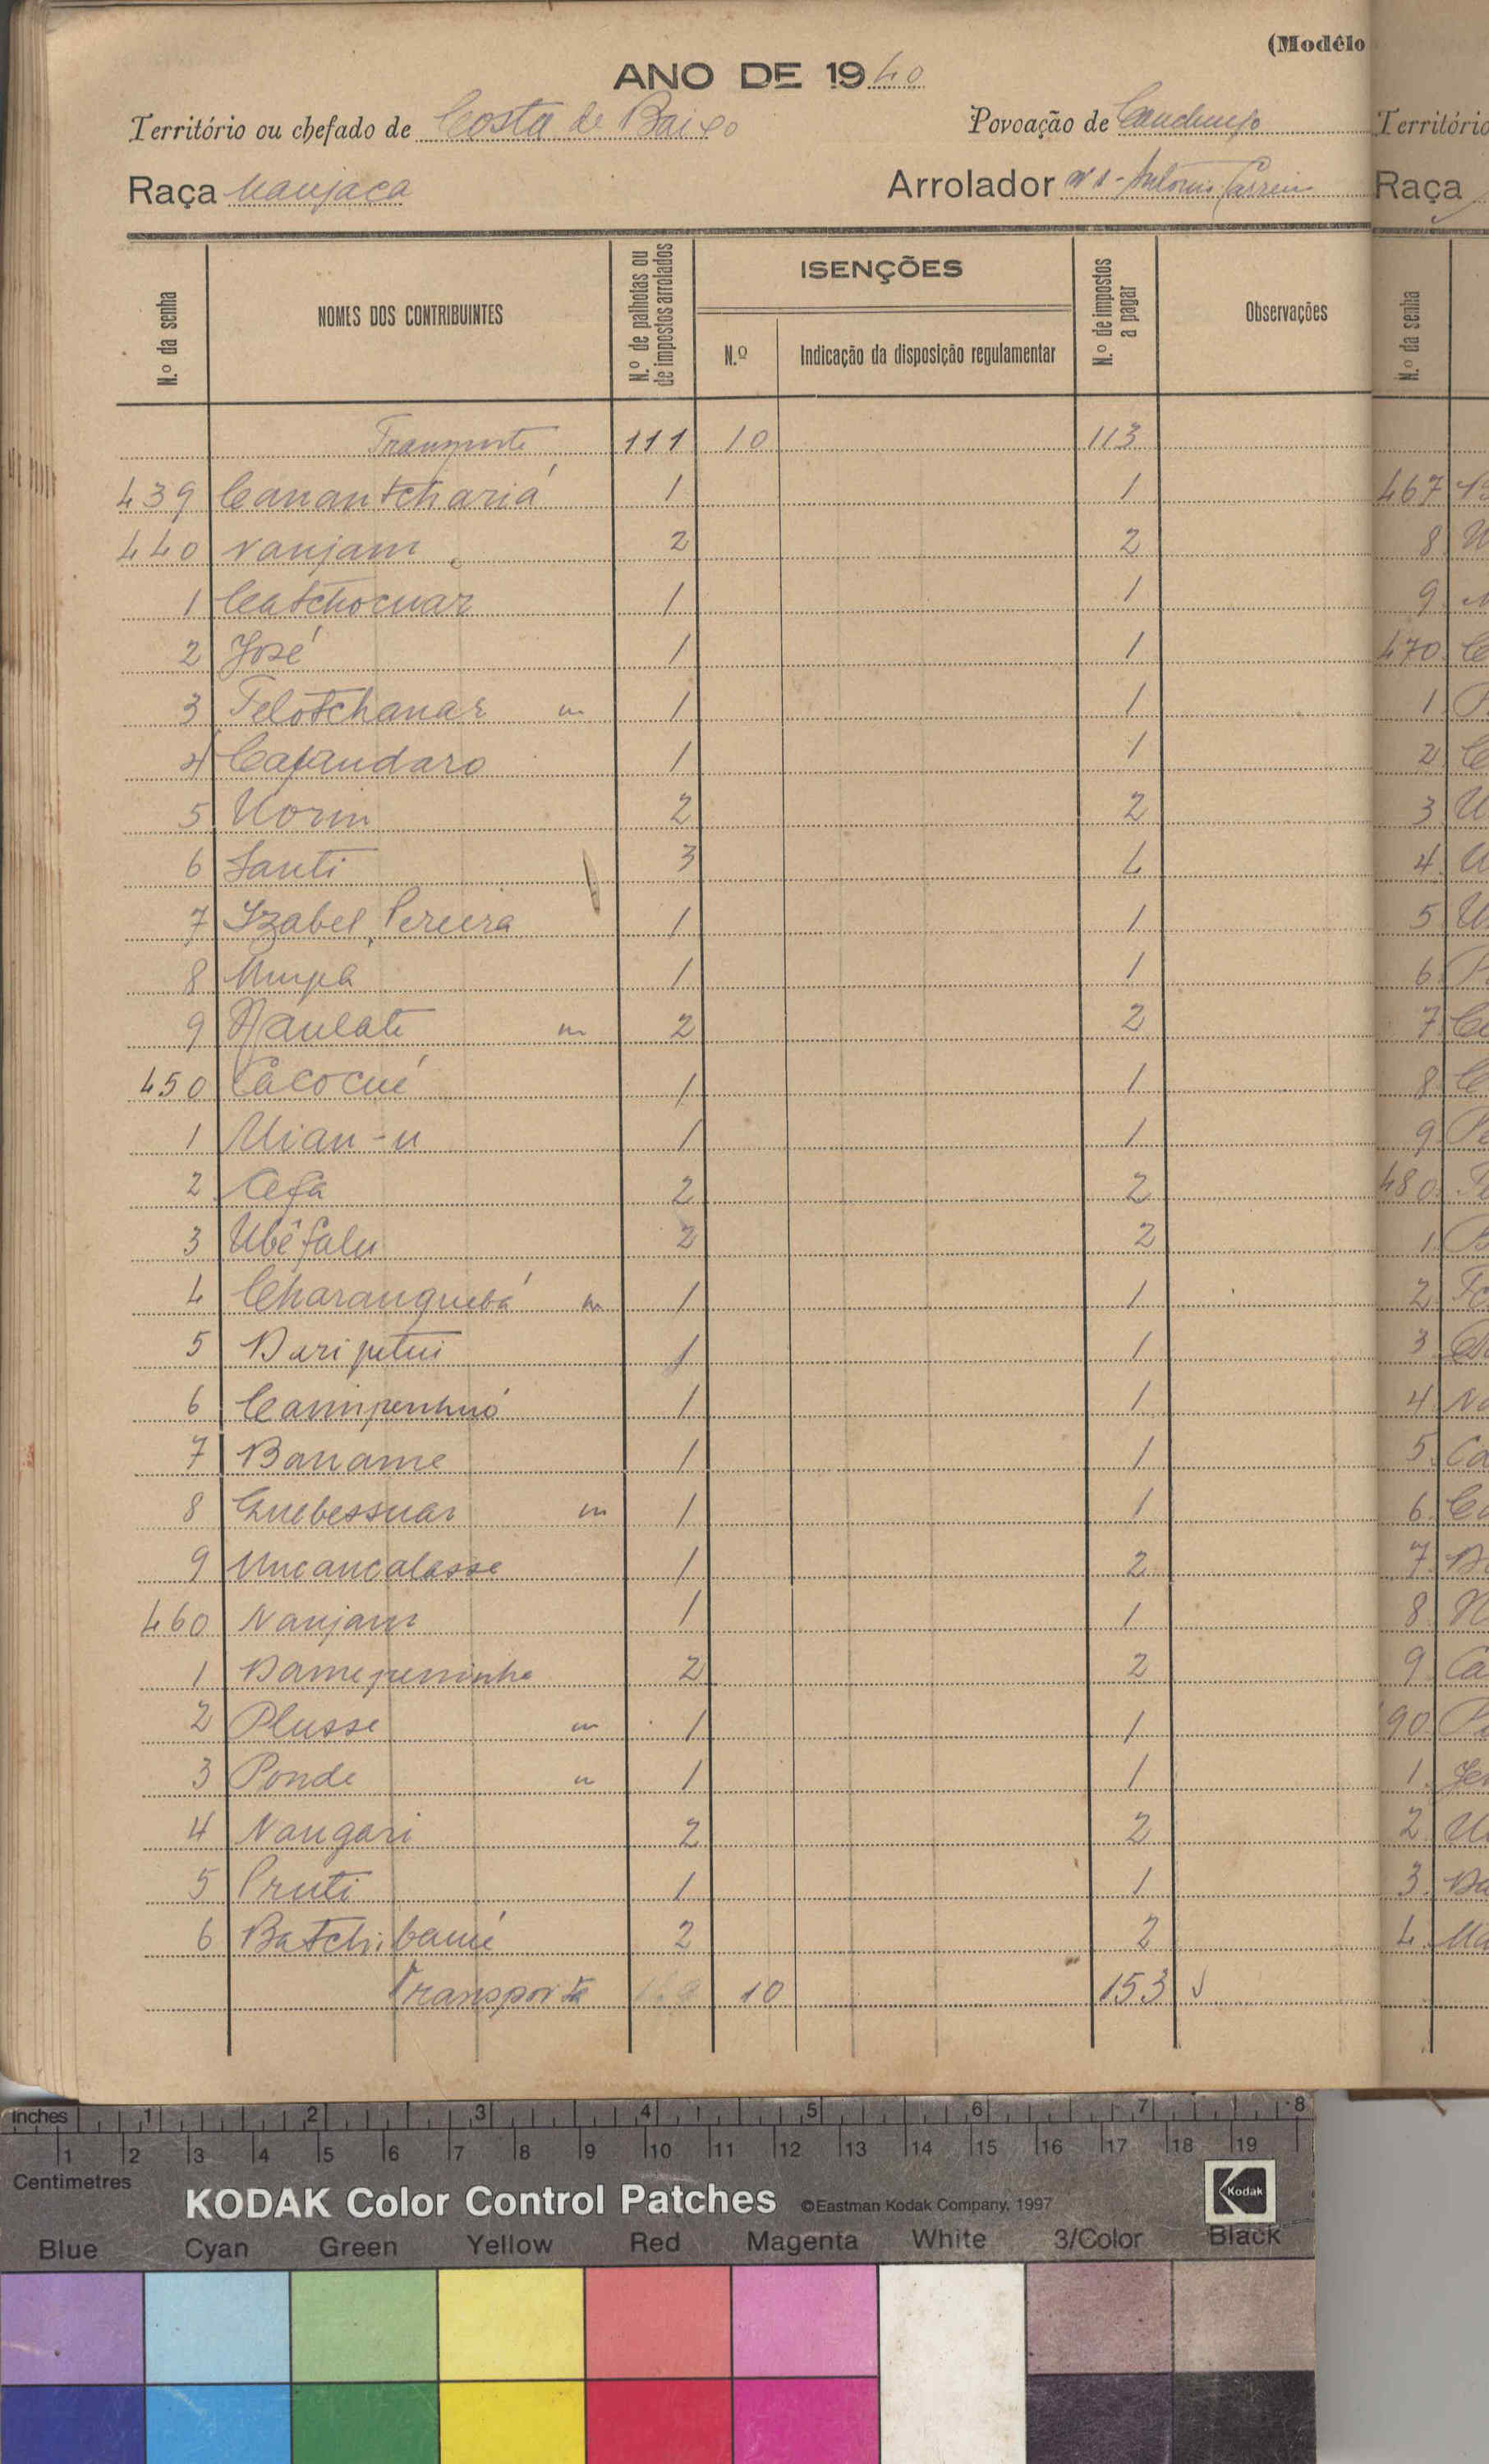 (Modêlo
ANO DE 1940
Território ou chefado de Costa de Baixo Povoação de
Raça Manjaca Arrolador nº 1 - António Carreira
N.º da senha NOMES DOS CONTRIBUINTES N.º de palhotas ou de impostos arrolados ISENÇÕES N.º Indicação da disposição regulamentar N.º de impostos a pagar Observações
Transporte 111 10 113
439 Canantchariá 1 1
440 Nanjam 2 2
1 Catchocuar 1 1
2 José 1 1
3 Telotchanar m 1 1
4 Cafandaro 1 1
5 Uorin 2 2
6 Santi 3 4
7 Izabel Pereira 1 1
8 1 1
9 Naulate m 2 2
450 Cacocué 1 1
1 Mian-u 1 1
2 Cefa 2 2
3 Ubêfalu 2 2
4 Charanguebá m 1 1
5 1 1
6 1 1
7 Baname 1 1
8 Quebessuar m 1 1
9 Uncancalasse 1 2
460 Nanjam 1 1
1 2 2
2 Plusse m 1 1
3 Ponde m 1 1
4 Nangari 2 2
5 Pruti 1 1
6 Batchibamé 2 2
Transporte 10 153
Território
Raça
N.º da senha
467
8
9
470
1
2
3
4
5
6
7
8
9
480
1
2
3
4
5
6
7
8
9
90
1
2
3
4
inches 1 2 3 4 5 6 7 8
1 2 3 4 5 6 7 8 9 10 11 12 13 14 15 16 17 18 19
Centimetres
KODAK Color Control Patches ©Eastman Kodak Company, 1997 Kodak
Blue Cyan Green Yellow Red Magenta White 3/Color Black